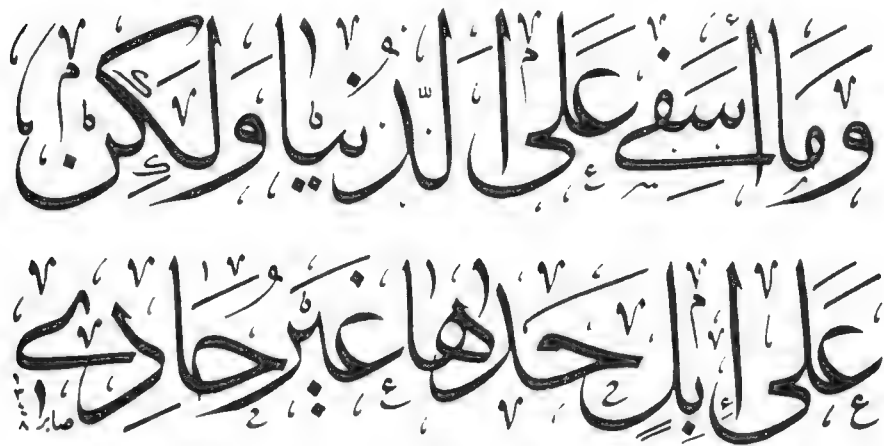 وَمَا اَسَفِى عَلَى الدُّنْيَا وَلَكِنْ
عَلَى إِبِلٍ حَدَاهَا غَيْرُ حَادِى
صابر